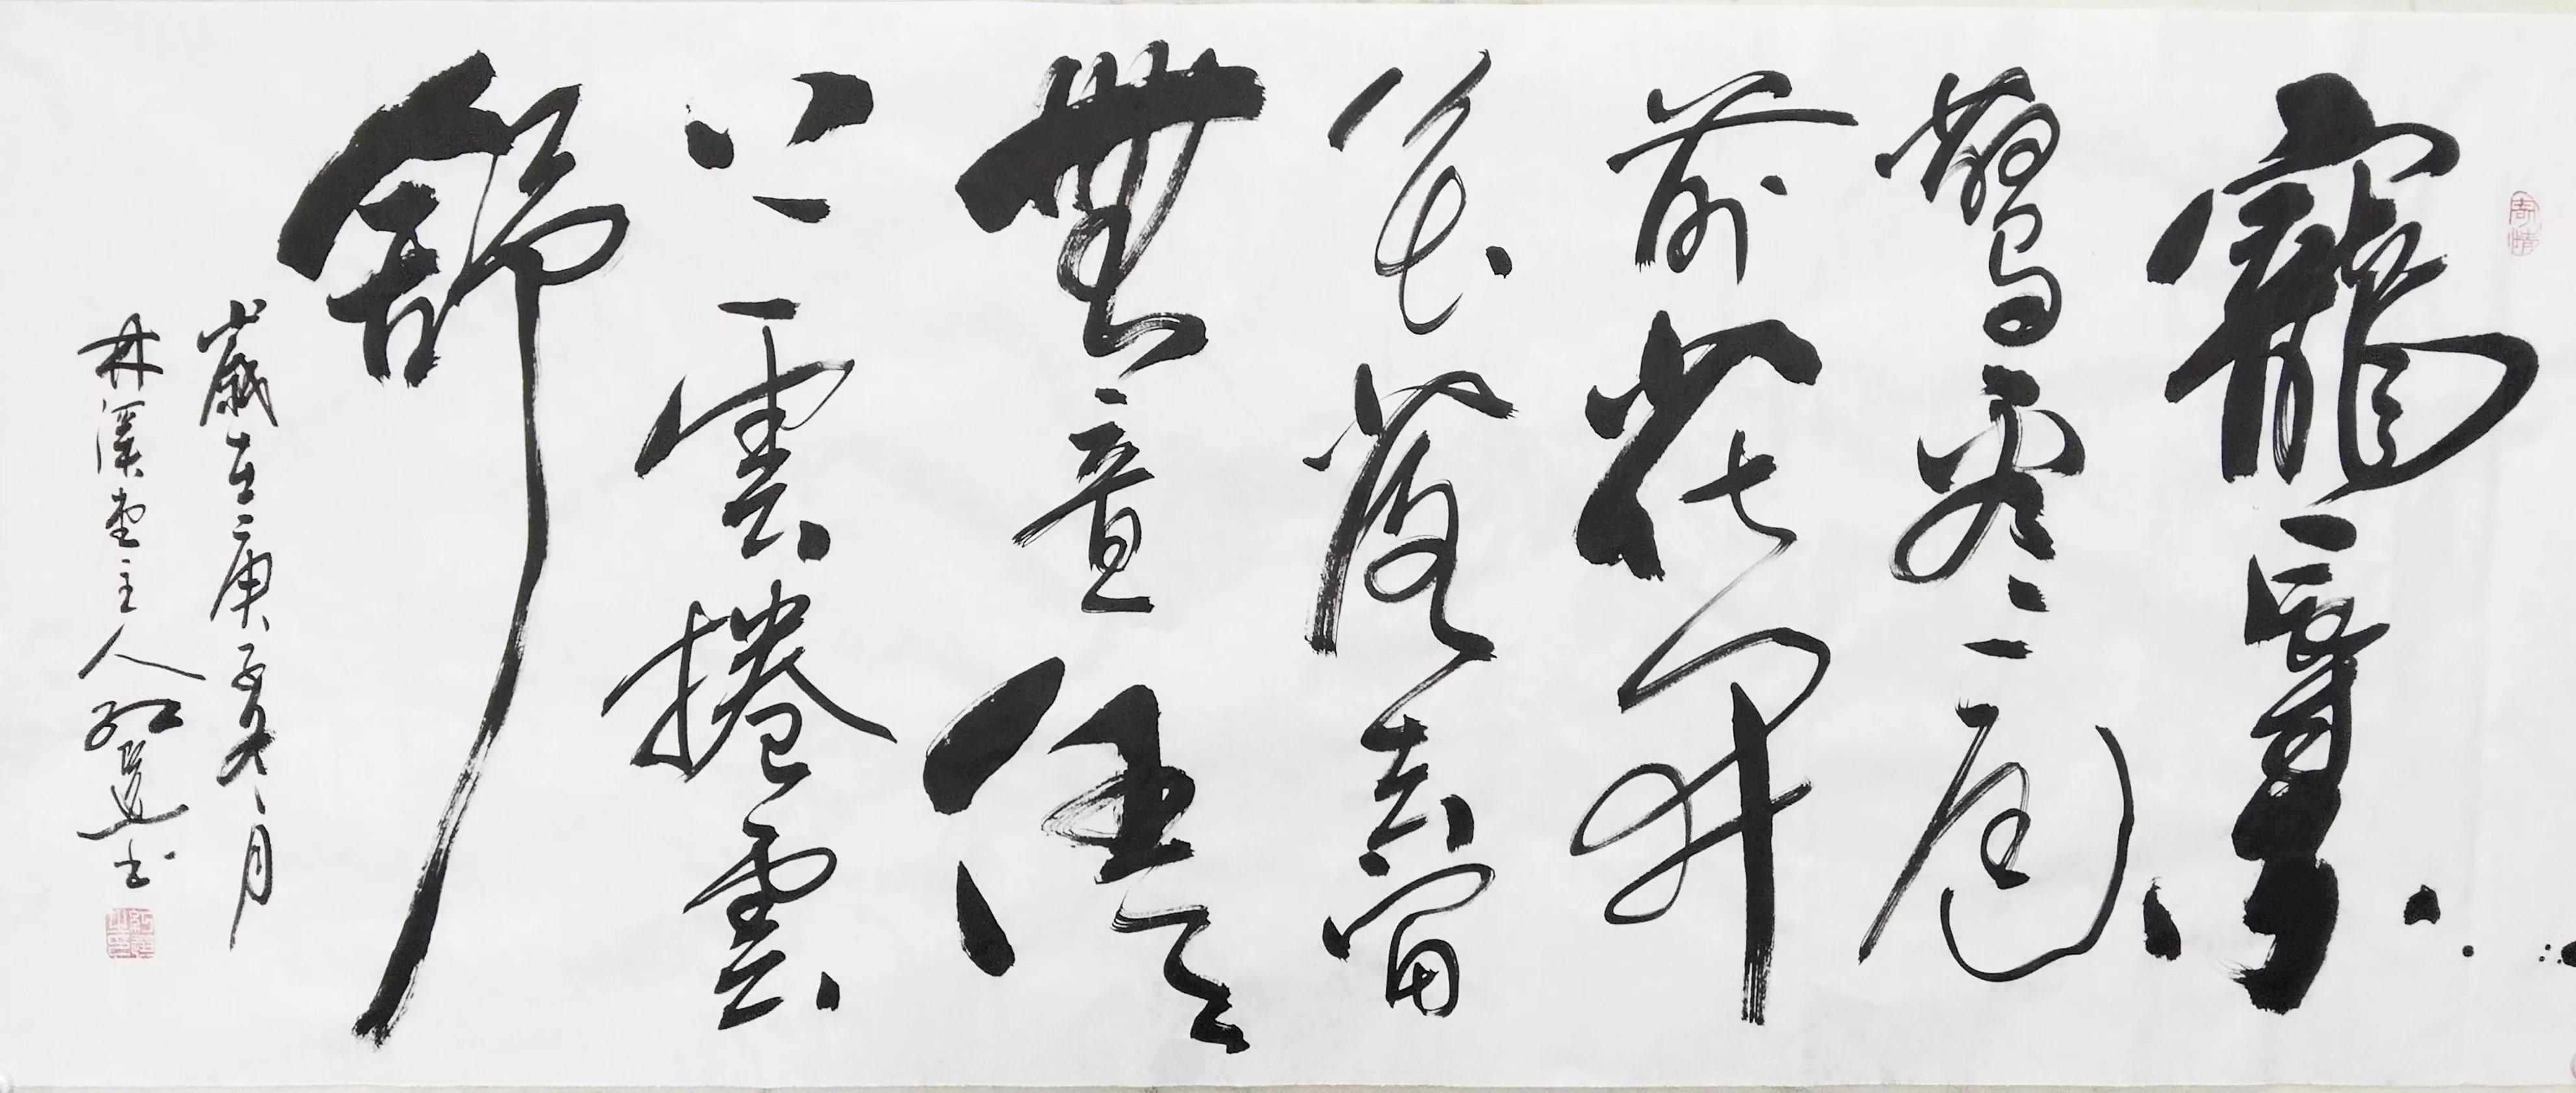 寵辱不
驚看庭
前花開
花落去留
無意任天
上雲捲雲
舒
歲在庚子月
林溪堂主人書
寄情